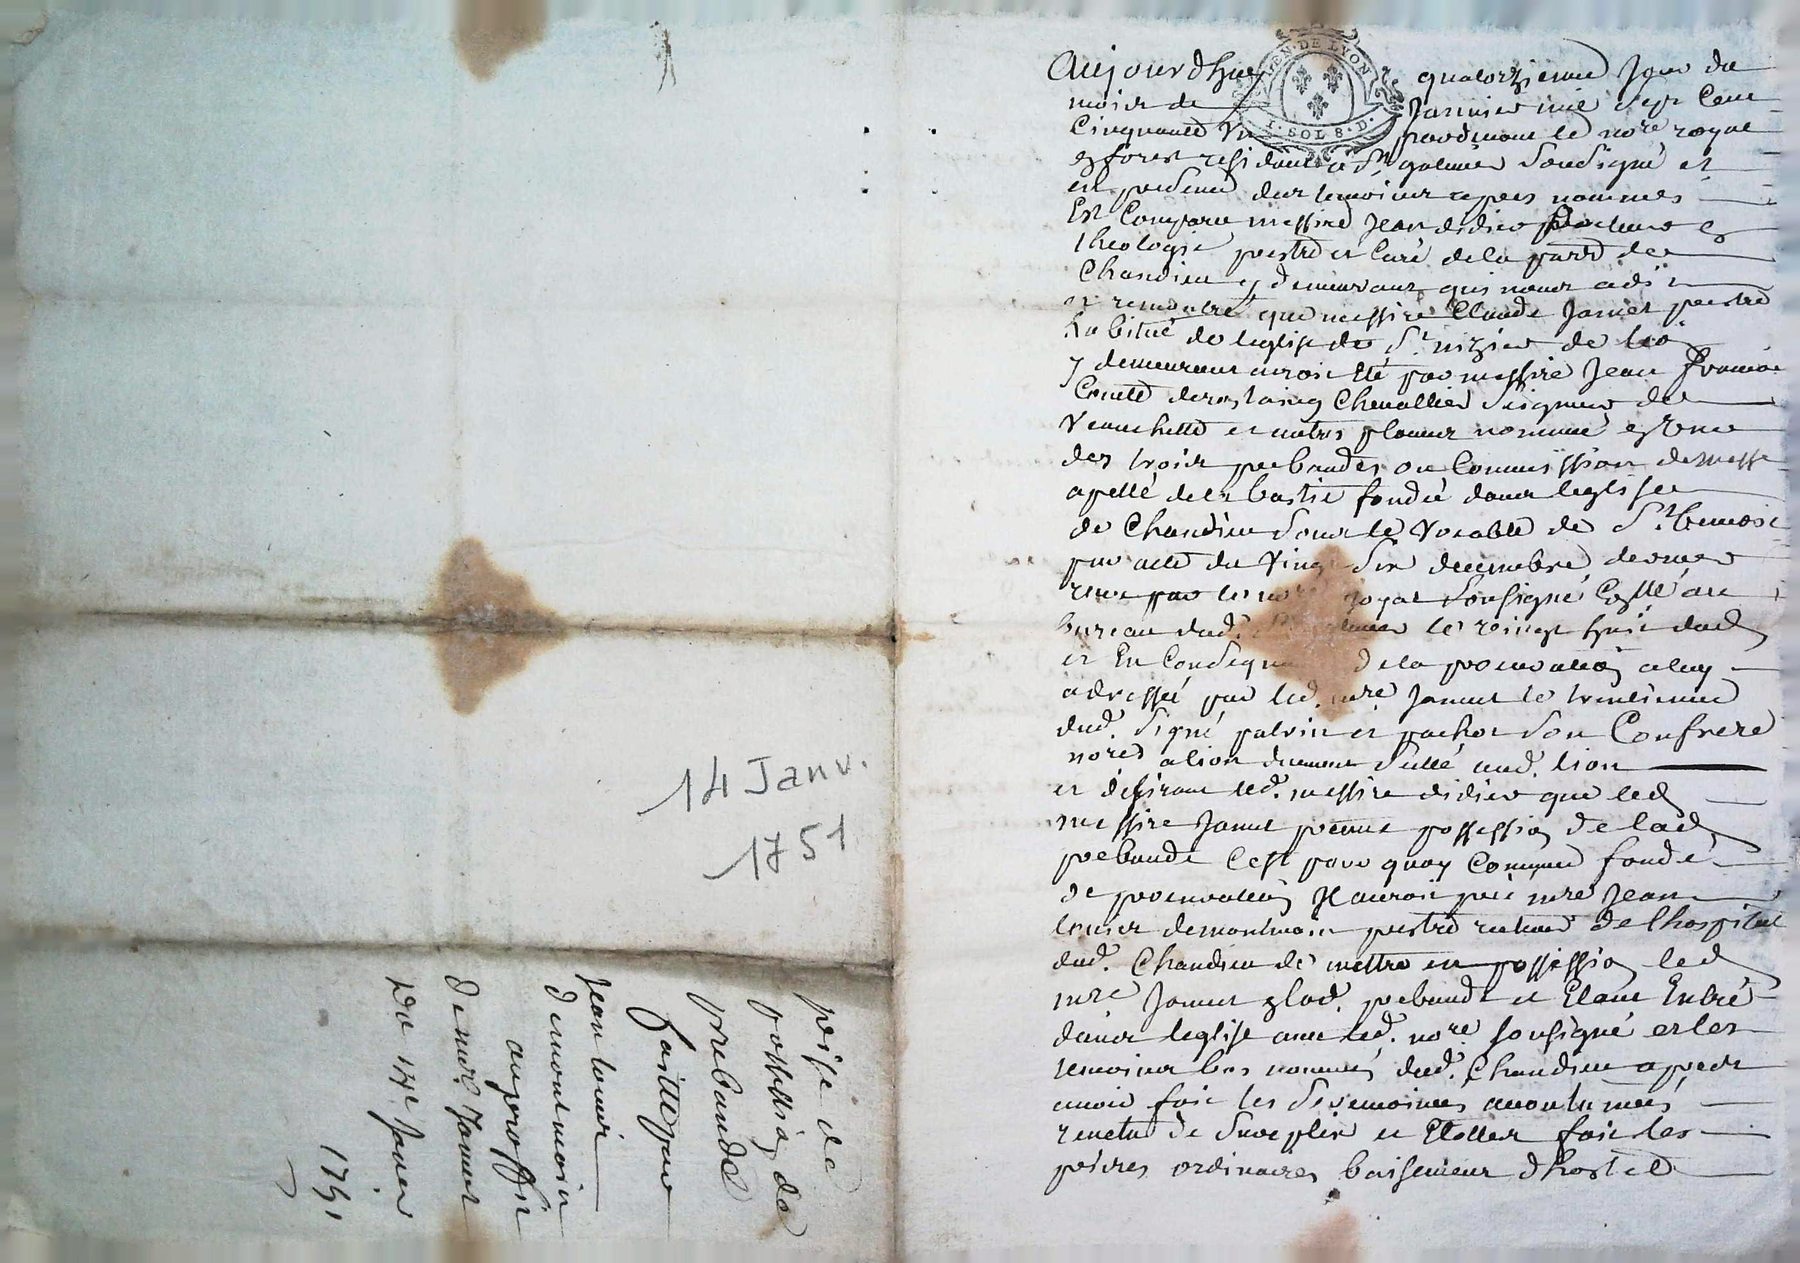 GEN · DE LYON
1 · SOL 8 · D.
Aujourdhuy quatorzieme Jour du
mois de Janvier mil sept Cent
Cinquante Un pardevant le nore royal
en forest residant a St galmier soussigné et
en presence des temoins apres nommés
Est Comparu messire Jean didier docteur en
theologie prestre et Curé de la parr de
Chandieu y demeurant qui nous a dit
et remontré que messire Claude Jamet prestre
habitué de leglise de St nizier de lion
y demeurant auroit eté par messire Jean francois
Comte derostaing Chevallier seigneur de
Veauchette et autres places nommé a une
des trois prebandes ou Commission de messe
apellé de la bastie fondée dans leglise
de Chandieu sous le Vocable de St benoist
par acte du Vingt Six decembre dernier
recu par le nore royal soussigné Contrôlé au
bureau dud. St galmier le vingt huit dud
et En Consequence de la procuration a luy
adressée par led. mre Jamet le trentieme
dud. Signé patrin et pachot son Confrere
nores a lion duement scellé aud. lion
et desirant led. messire didier que led
messire Jamet prenne possession de lad
prebande C'est pour quoy Comme fondé
de procuration Il auroit prié mre Jean
louis demontmain prestre recteur de lhospital
dud. Chandieu de mettre en possession led
mre Jamet de lad. prebande et Etant Entré
dans leglise avec led. nore soussigné et les
temoins bas nommés dud. Chandieu apres
avoir fait les Ceremonies accoutumées
revetu de Surplis et Etolle fait les
prieres ordinaires baisement dhostel
14 Janv.
1751
prise de
possession de
prebande
faitte par
Jean louis
demontmain
au proffit
de mre Jamet
Du 14e Janvier
1751